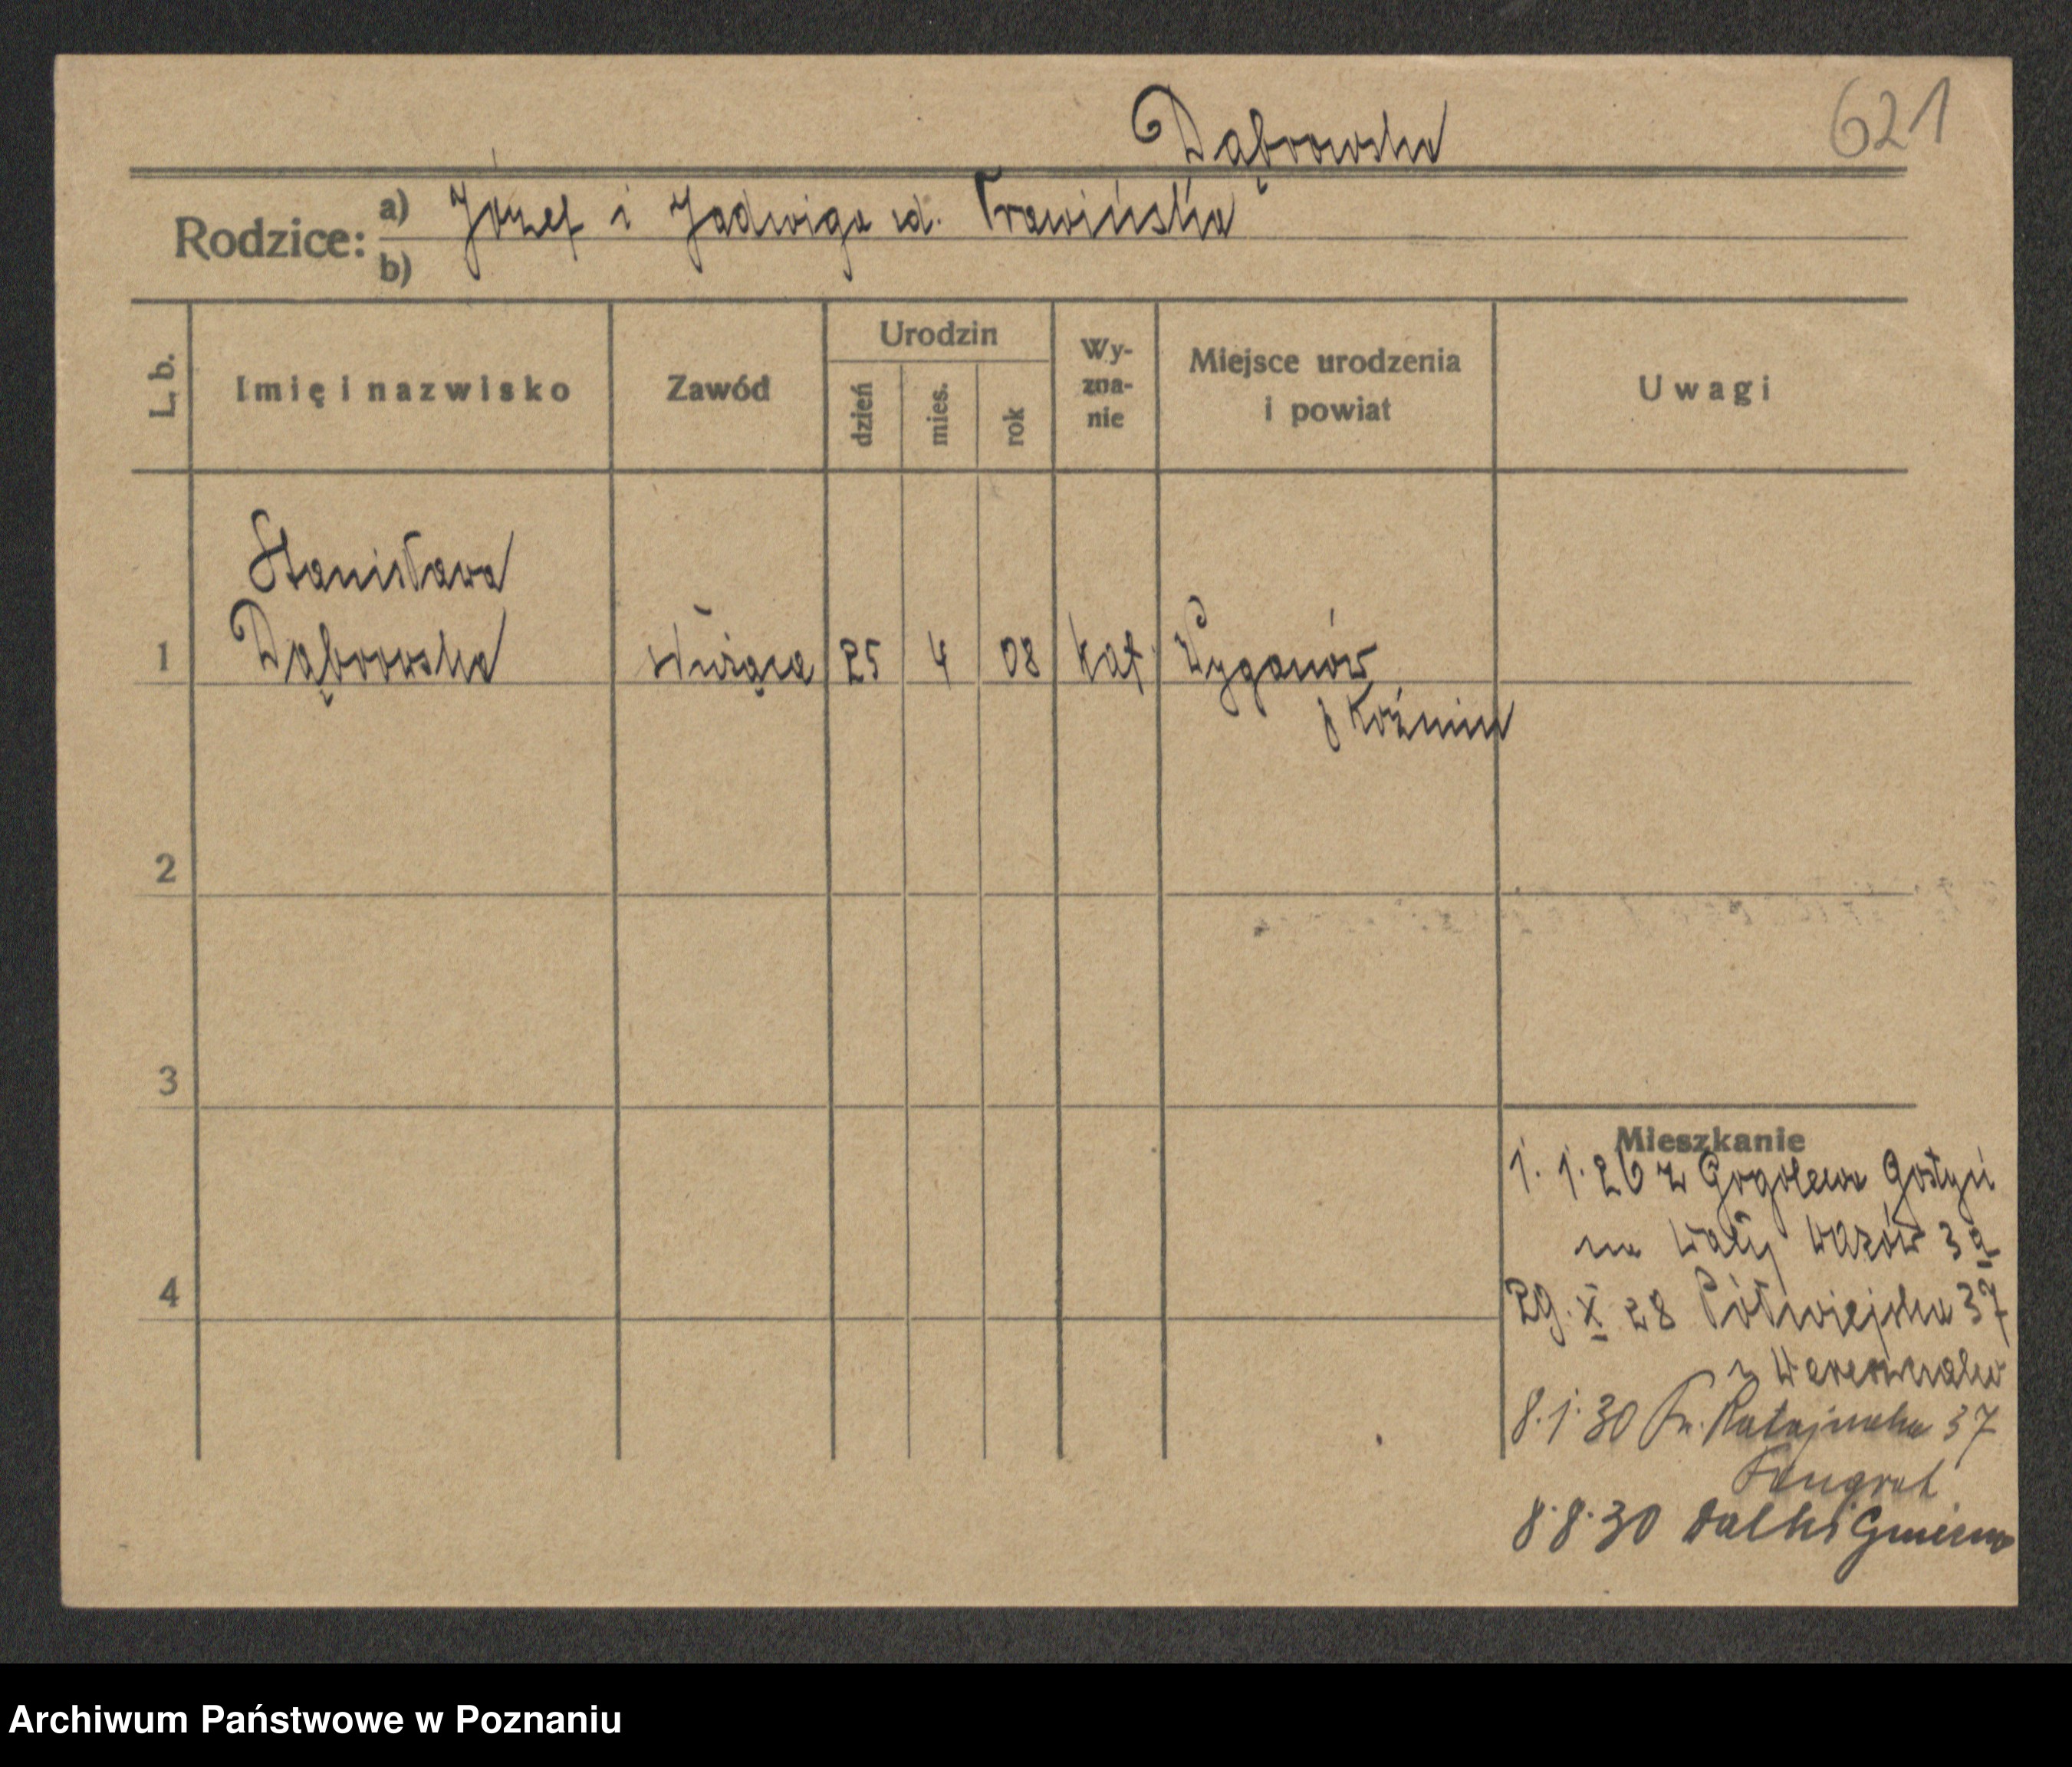 621
Dąbrowska
Rodzice: a) Józef i Jadwiga zd. Trawińska
b)
L. b. Imię i nazwisko Zawód Urodzin dzień mies. rok Wy-zna-nie Miejsce urodzenia i powiat Uwagi
Stanisława
1 Dąbrowska służąca 25 4 08 kat. Wyganów
p Koźmin
2
3
Mieszkanie
1. 1. 26 z Gogolewa Gostyń
na Wały Wazów 3a
4
29. X 28 Półwiejska 37
8.1.30 Fr. Ratajczaka 37
8.8.30 Dalki Gniezno
Archiwum Państwowe w Poznaniu